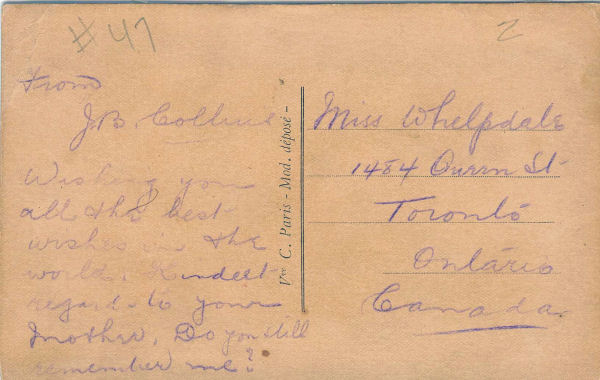 #47
2
From
J.B. Collins
Wishing you
all the best
wishes in the
world. Kindest
regard to your
Mother. Do you still
remember me?
Vve C. Paris - Mod. déposé -
Miss Whelpdale
1484 Queen St
Toronto
Ontario
Canada